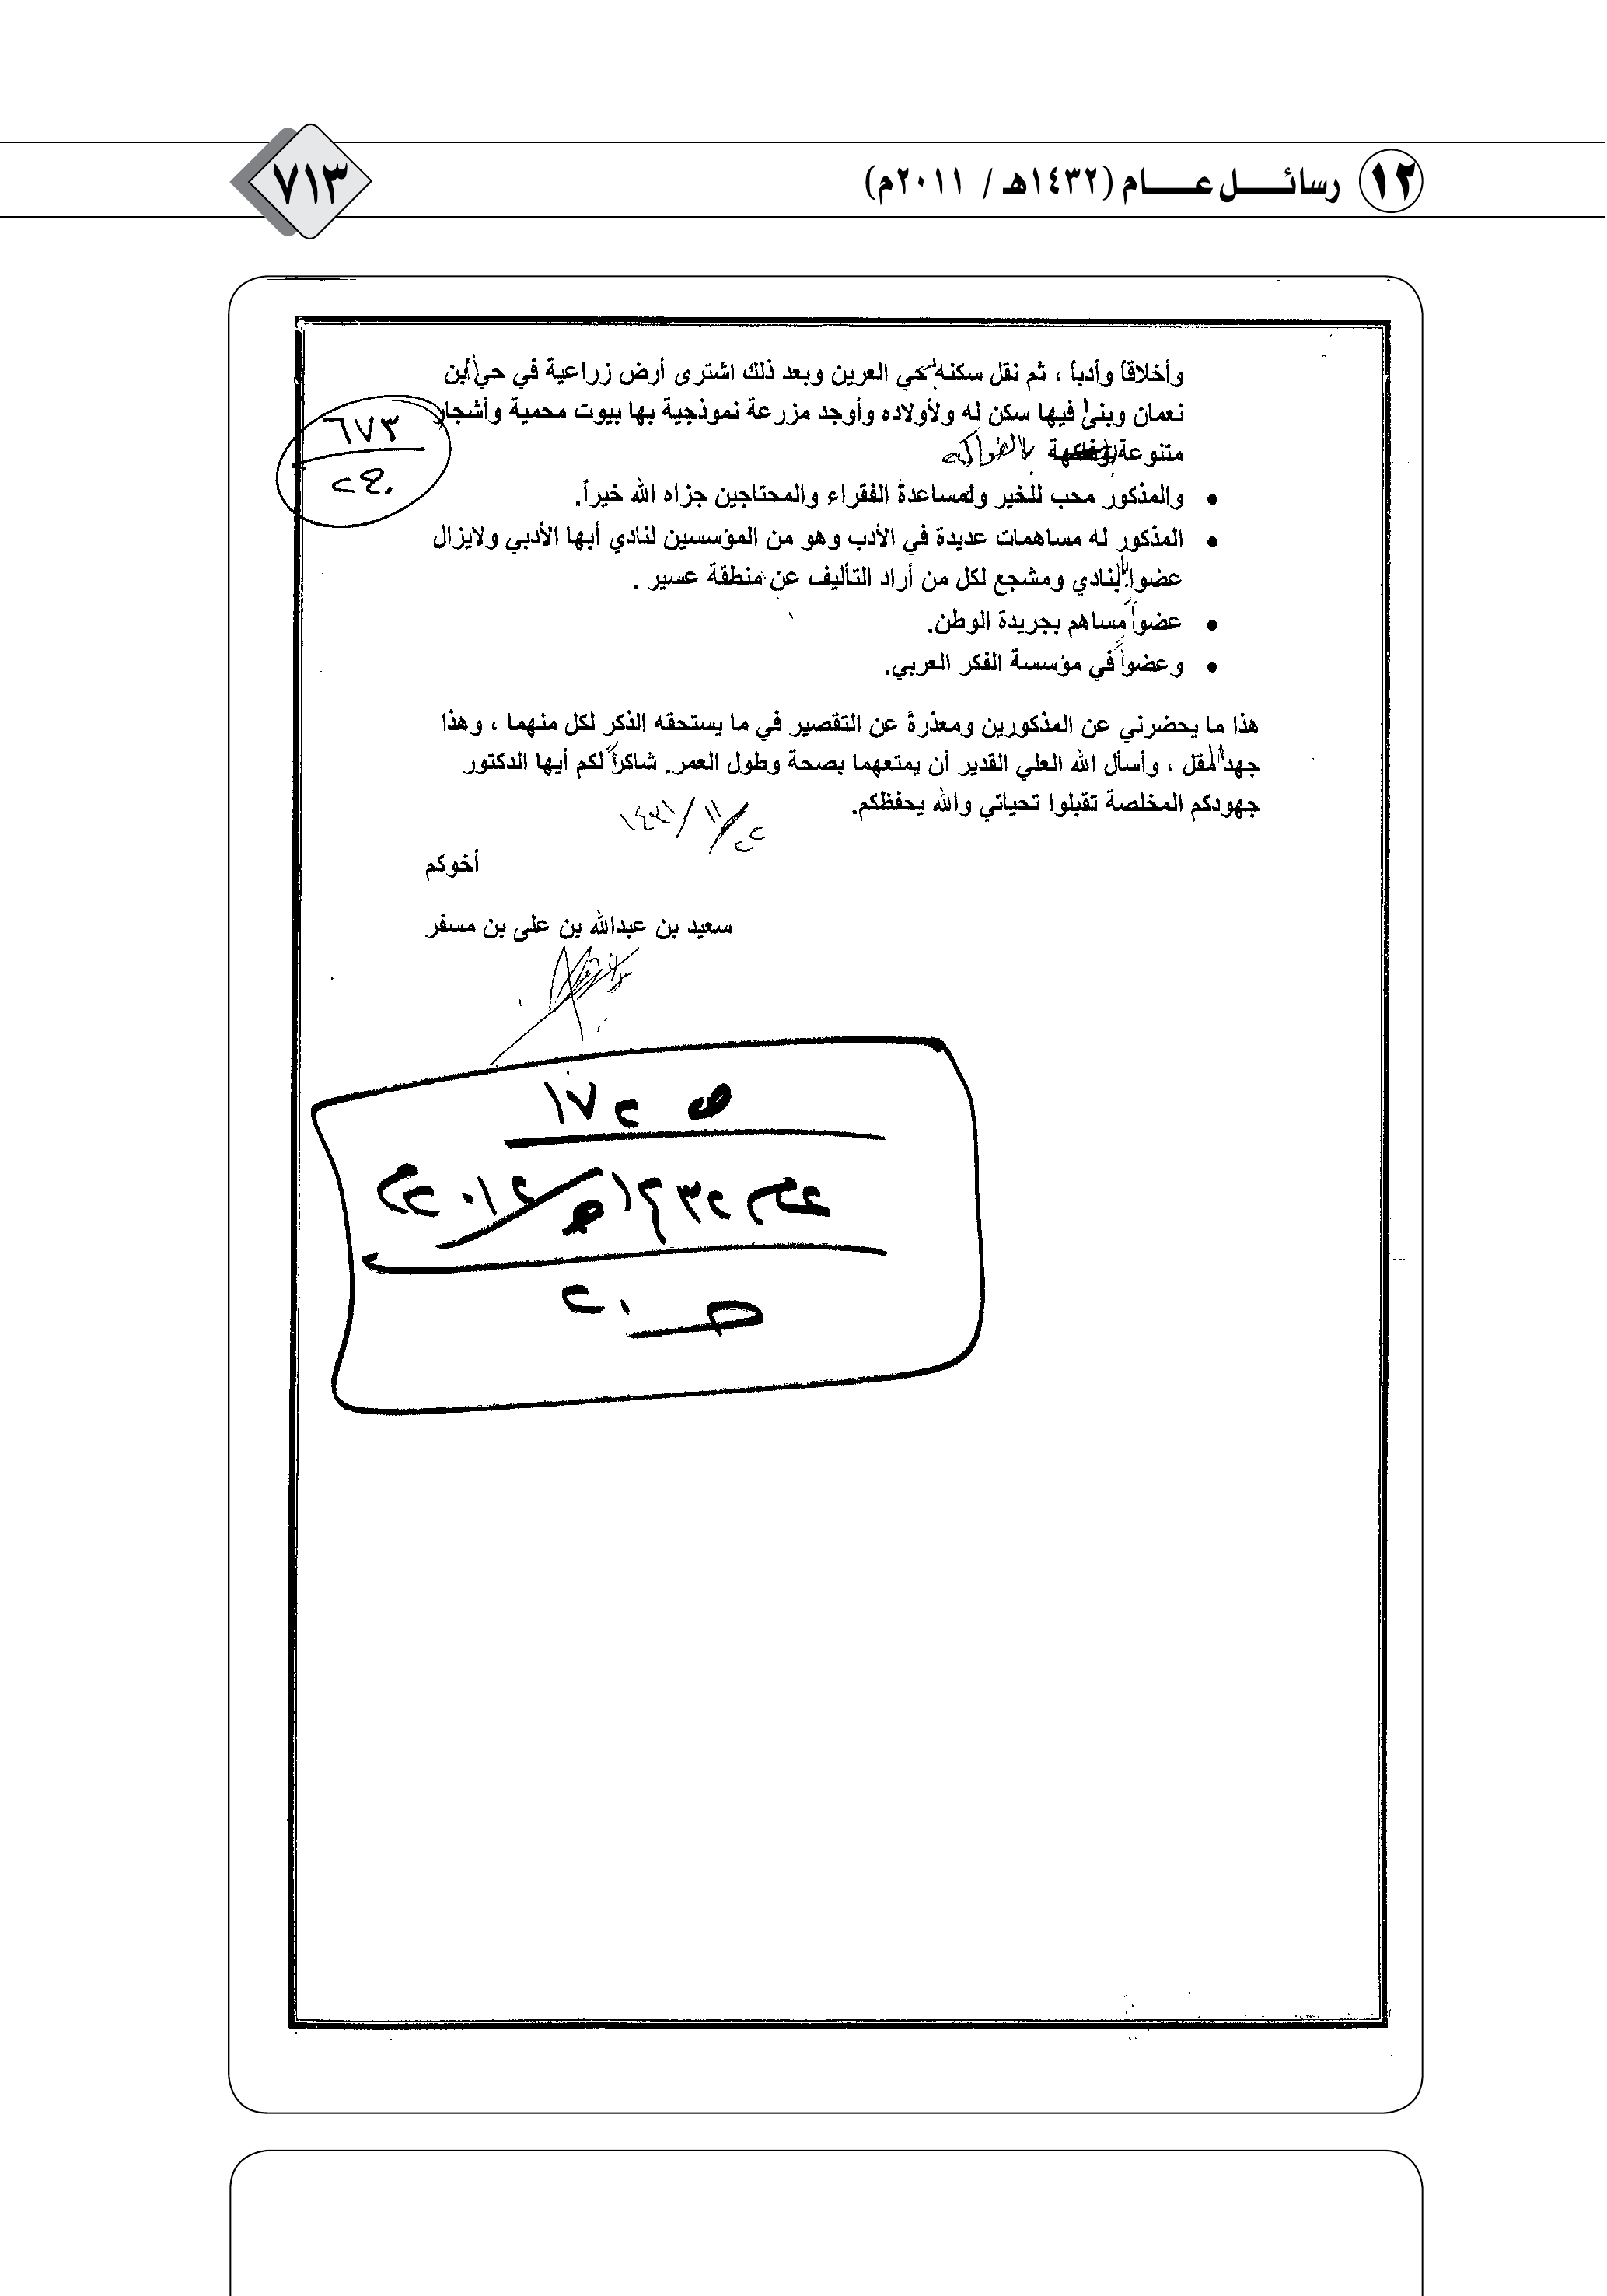 ١٢ رسائل عام (١٤٣٢هـ / ٢٠١١م)
٧١٣
وأخلاقاً وأدباً ، ثم نقل سكنه لحي العرين وبعد ذلك اشترى أرض زراعية في حي ابن
نعمان وبنى فيها سكن له ولأولاده وأوجد مزرعة نموذجية بها بيوت محمية وأشجار
متنوعة بالفواكه
٦٧٣
• والمذكور محب للخير ولمساعدة الفقراء والمحتاجين جزاه الله خيراً.
• المذكور له مساهمات عديدة في الأدب وهو من المؤسسين لنادي أبها الأدبي ولايزال
عضواً بالنادي ومشجع لكل من أراد التأليف عن منطقة عسير .
• عضواً مساهم بجريدة الوطن.
• وعضواً في مؤسسة الفكر العربي.
هذا ما يحضرني عن المذكورين ومعذرةً عن التقصير في ما يستحقه الذكر لكل منهما ، وهذا
جهد المقل ، وأسأل الله العلي القدير أن يمتعهما بصحة وطول العمر. شاكراً لكم أيها الدكتور
جهودكم المخلصة تقبلوا تحياتي والله يحفظكم.
٢٢/١١/١٤٣١
أخوكم
سعيد بن عبدالله بن على بن مسفر